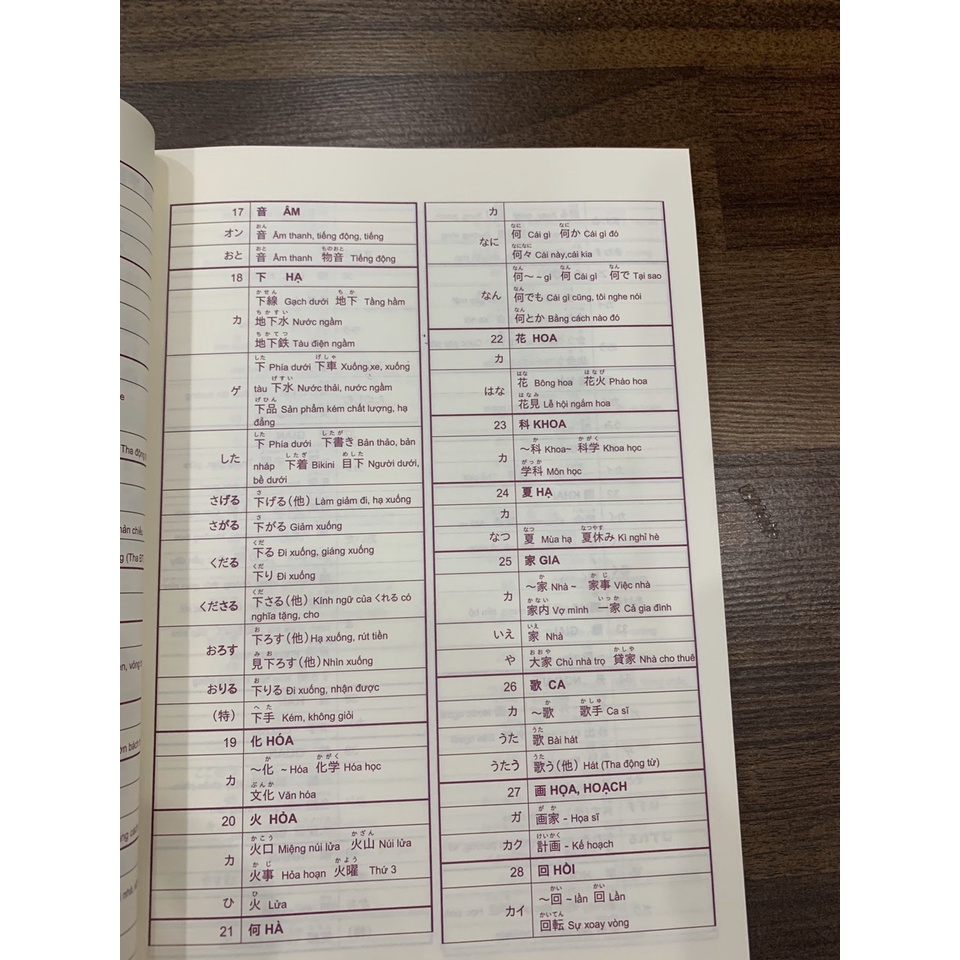 17 音 ÂM
おん
オン 音 Âm thanh, tiếng động, tiếng
おと ものおと
おと 音 Âm thanh 物音 Tiếng động
18 下 HẠ
かせん ちか
下線 Gạch dưới 地下 Tầng hầm
ちかすい
カ 地下水 Nước ngầm
ちかてつ
地下鉄 Tàu điện ngầm
した げしゃ
下 Phía dưới 下車 Xuống xe, xuống
げすい
ゲ tàu 下水 Nước thải, nước ngầm
げひん
下品 Sản phẩm kém chất lượng, hạ
đẳng
した したが
下 Phía dưới 下書き Bản thảo, bản
したぎ めした
した nháp 下着 Bikini 目下 Người dưới,
bề dưới
さ
さげる 下げる(他) Làm giảm đi, hạ xuống
さ
さがる 下がる Giảm xuống
くだ
くだる 下る Đi xuống, giáng xuống
くだ
下り Đi xuống
くだ
くださる 下さる(他) Kính ngữ của くれる có
nghĩa tặng, cho
お
おろす 下ろす(他) Hạ xuống, rút tiền
みお
見下ろす(他) Nhìn xuống
お
おりる 下りる Đi xuống, nhận được
へた
(特) 下手 Kém, không giỏi
19 化 HÓA
か かがく
カ ～化 ~ Hóa 化学 Hóa học
ぶんか
文化 Văn hóa
20 火 HỎA
かこう かざん
火口 Miệng núi lửa 火山 Núi lửa
カ かじ かよう
火事 Hỏa hoạn 火曜 Thứ 3
ひ
ひ 火 Lửa
21 何 HÀ
カ
なに なに
なに 何 Cái gì 何か Cái gì đó
なになに
何々 Cái này,cái kia
なん なん なん
何～ ~ gì 何 Cái gì 何で Tại sao
なん
なん 何でも Cái gì cũng, tôi nghe nói
なん
何とか Bằng cách nào đó
22 花 HOA
カ
はな はなび
はな 花 Bông hoa 花火 Pháo hoa
はなみ
花見 Lễ hội ngắm hoa
23 科 KHOA
か かがく
カ ～科 Khoa~ 科学 Khoa học
がっか
学科 Môn học
24 夏 HẠ
カ
なつ なつやす
なつ 夏 Mùa hạ 夏休み Kì nghỉ hè
25 家 GIA
か かじ
～家 Nhà ~ 家事 Việc nhà
カ かない いっか
家内 Vợ mình 一家 Cả gia đình
いえ
いえ 家 Nhà
おおや かしや
や 大家 Chủ nhà trọ 貸家 Nhà cho thuê
26 歌 CA
か かしゅ
カ ～歌 歌手 Ca sĩ
うた
うた 歌 Bài hát
うた
うたう 歌う(他) Hát (Tha động từ)
27 画 HỌA, HOẠCH
がか
ガ 画家 - Họa sĩ
けいかく
カク 計画 - Kế hoạch
28 回 HỒI
かい かい
～回 ~ lần 回 Lần
カイ かいてん
回転 Sự xoay vòng